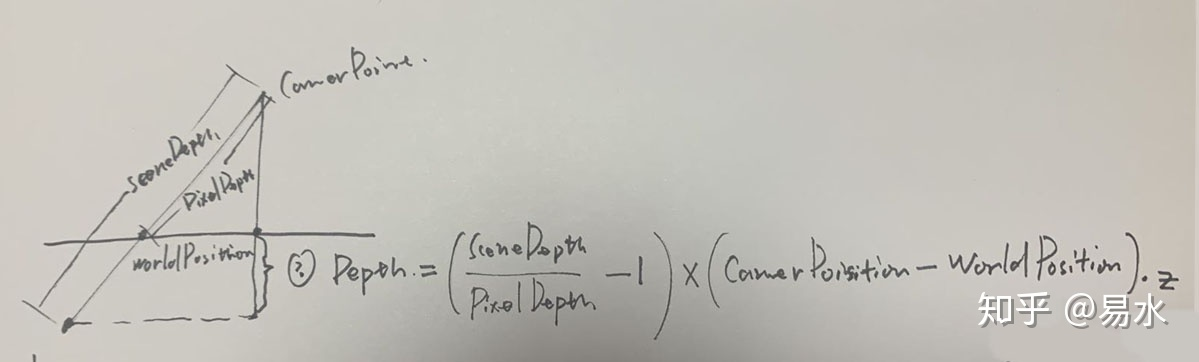 CamerPoint.
SceneDepth.
PixelDepth
WorldPosition
② Depth. = (SceneDepth / PixelDepth - 1) × (CamerPoisition - WorldPosition).z
知乎 @易水